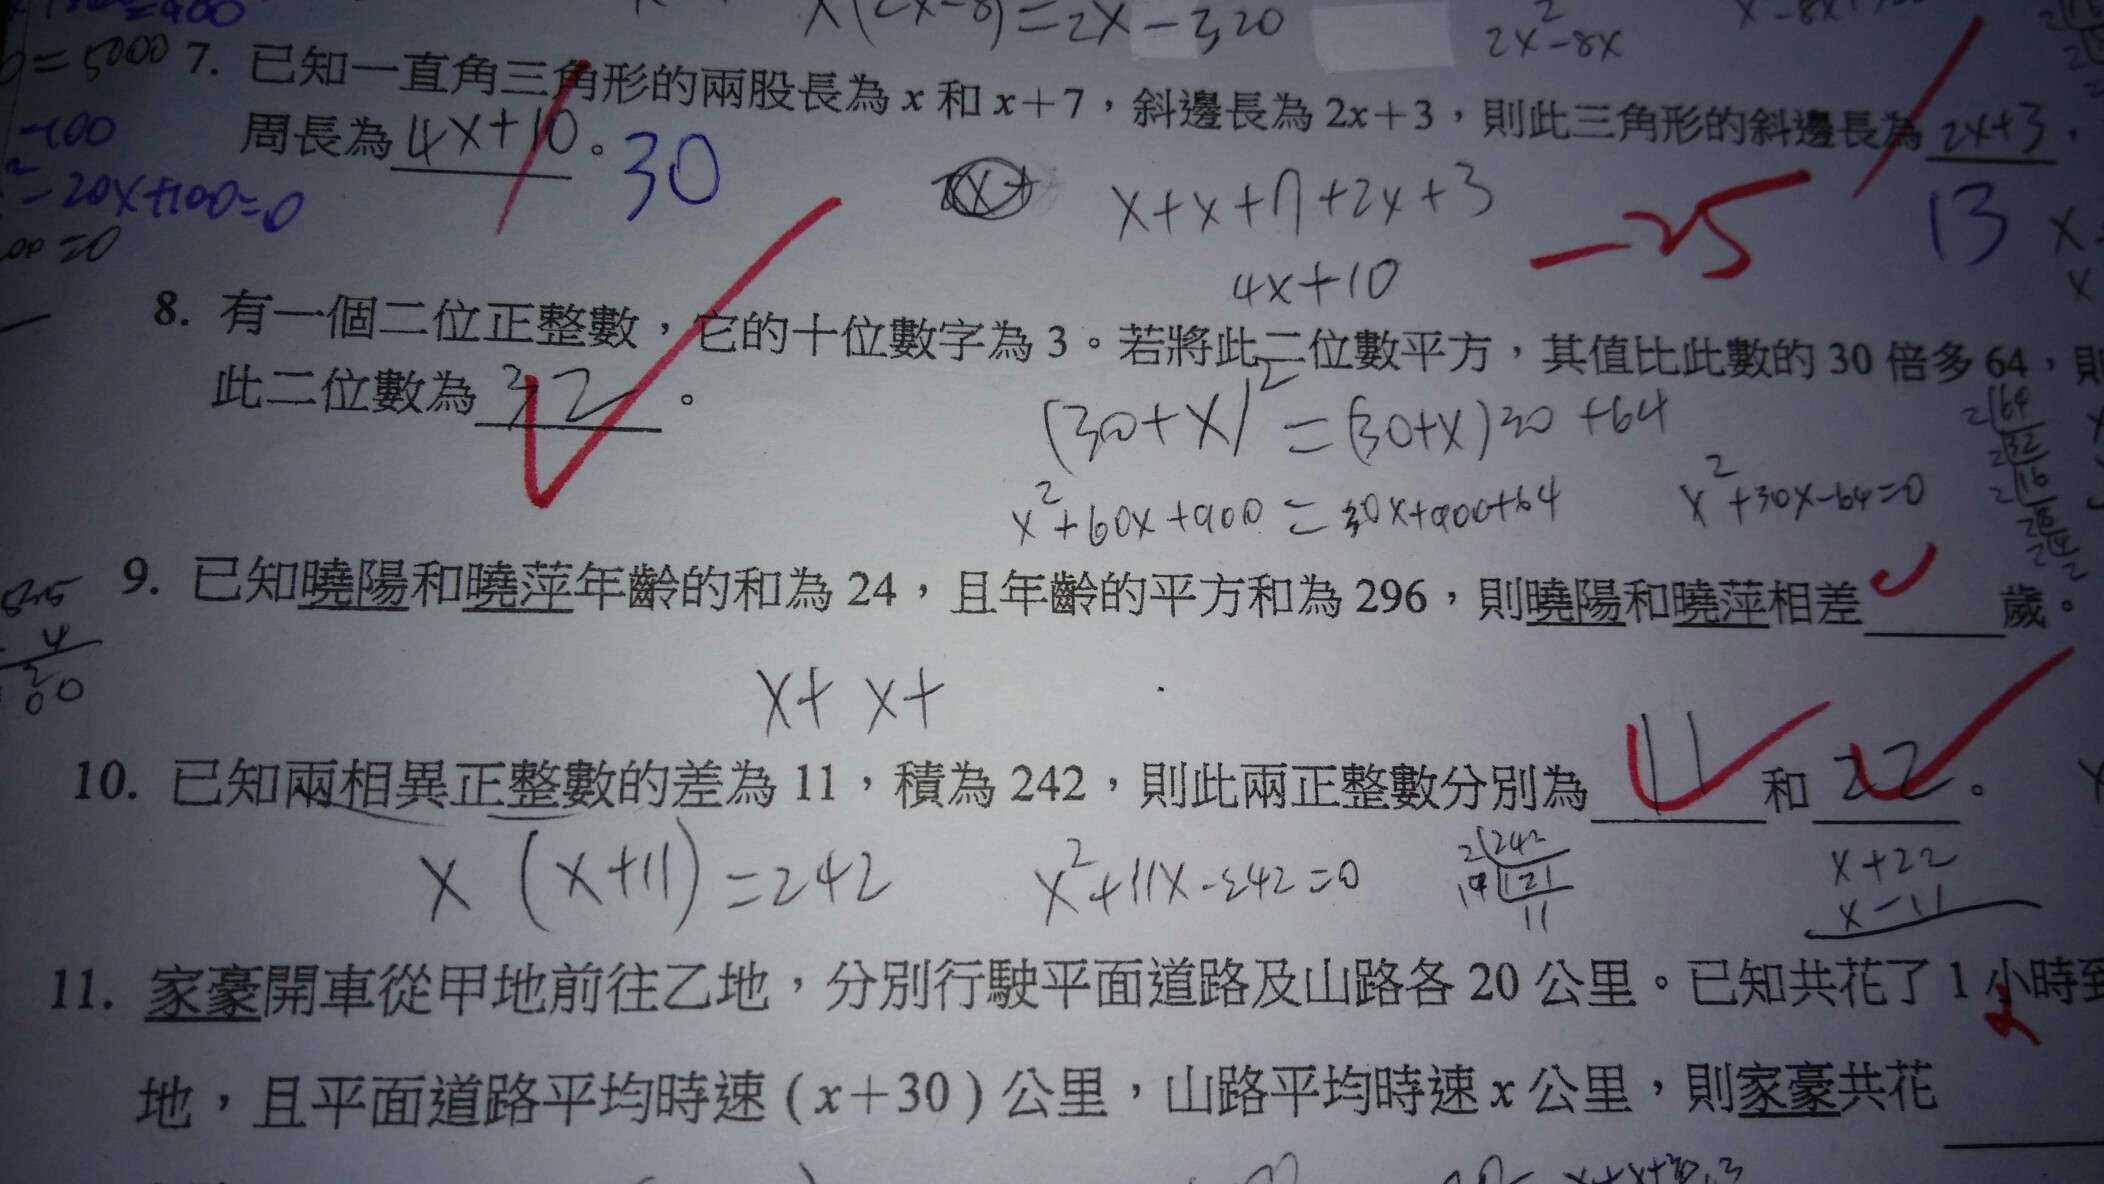 x(2x-8)=2x-320
2x²-8x
0=5000
7. 已知一直角三角形的兩股長為 x 和 x+7，斜邊長為 2x+3，則此三角形的斜邊長為 2x+3，
周長為 4x+10。30
-100
-20x+100=0
00=0
x+x+7+2x+3
-25
13
4x+10
8. 有一個二位正整數，它的十位數字為 3。若將此二位數平方，其值比此數的 30 倍多 64，則
此二位數為 32。
(30+x)²=(30+x)30+64
x²+60x+900=30x+900+64
x²+30x-64=0
2 64
2 32
2 16
9. 已知曉陽和曉萍年齡的和為 24，且年齡的平方和為 296，則曉陽和曉萍相差 歲。
x+ x+
10. 已知兩相異正整數的差為 11，積為 242，則此兩正整數分別為 11 和 22。
x(x+11)=242
x²+11x-242=0
2 242
121
11
x+22
x-11
11. 家豪開車從甲地前往乙地，分別行駛平面道路及山路各 20 公里。已知共花了 1 小時到
地，且平面道路平均時速（x+30）公里，山路平均時速 x 公里，則家豪共花